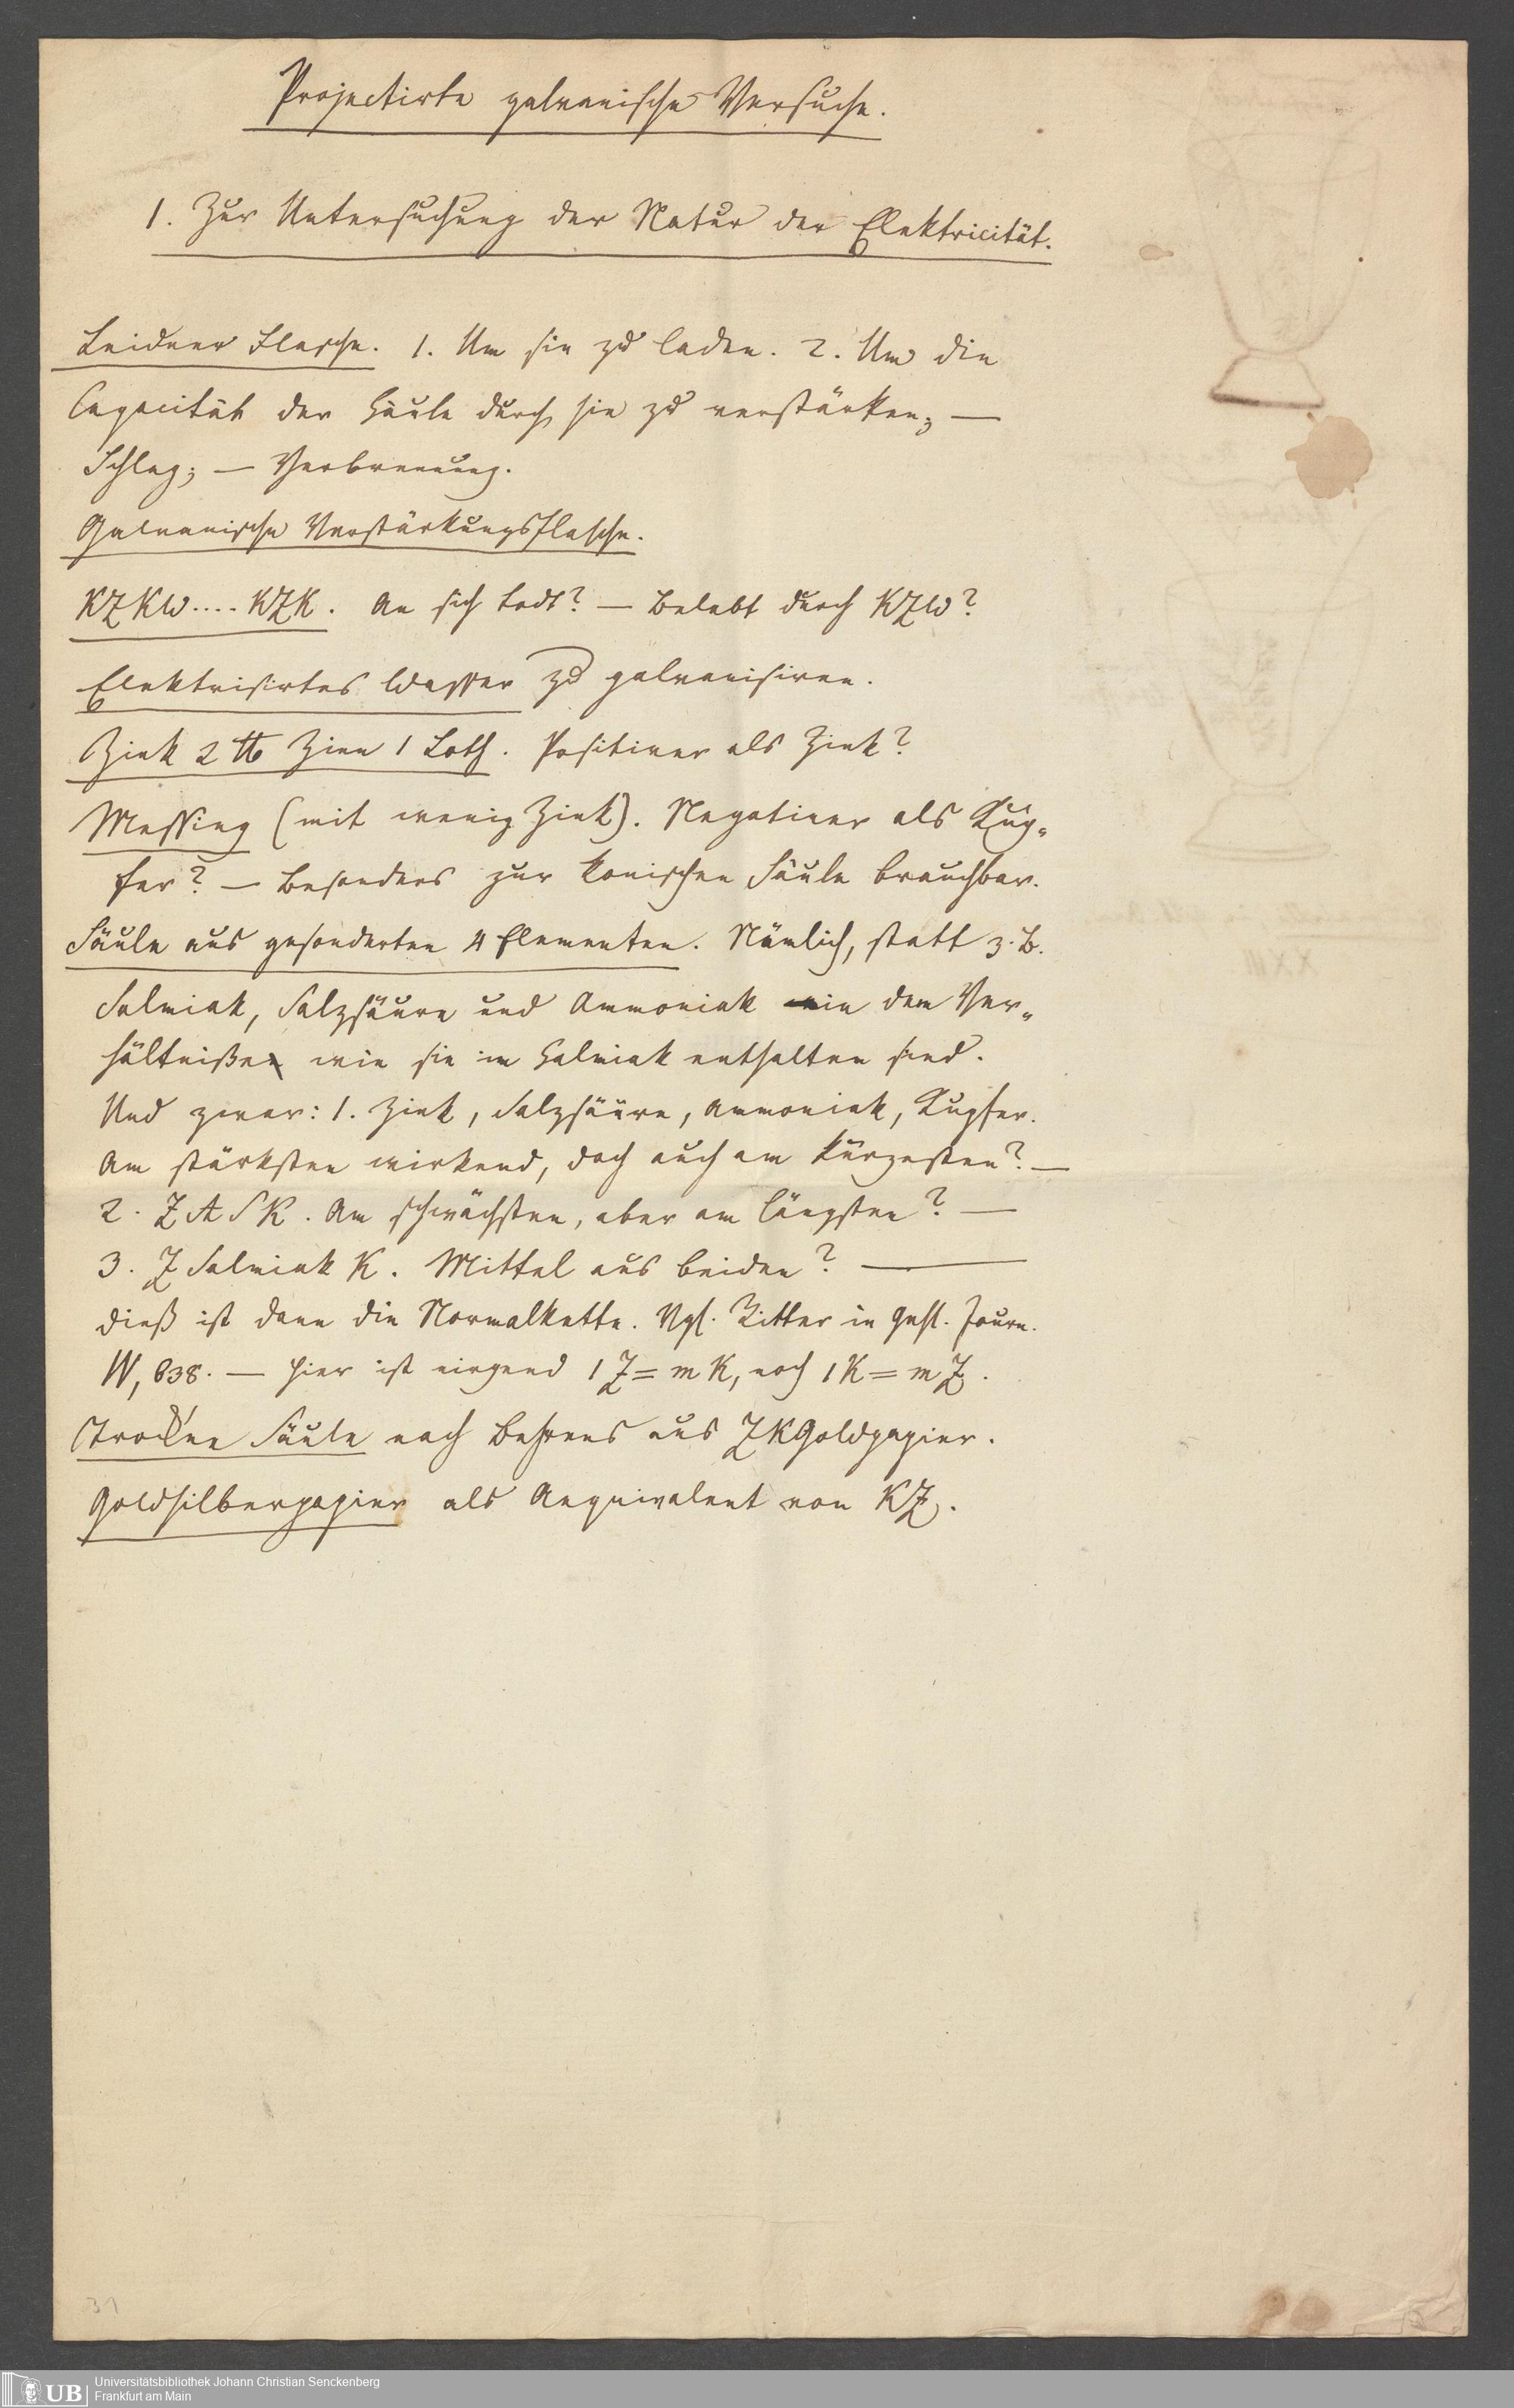 Projectirte galvanische Versuche.
1. Zur Untersuchung der Natur der Elektricität.
Leidner Flasche. 1. Um sie zu laden. 2. Um die
Capacität der Säule durch sie zu verstärken; —
Schlag; — Verbrennung.
Galvanische Verstärkungsflasche.
KZKW.... KZK. An sich todt? — Belebt durch KZW?
Elektrisirtes Wasser zu galvanisiren.
Zink 2 ℔ Zinn 1 Loth. Positiver als Zink?
Messing (mit wenig Zink). Negativer als Kup-
fer? — Besonders zur konischen Säule brauchbar.
Säule aus gesonderten 4 Elementen. Nämlich, statt z. B.
Salmiak, Salzsäure und Ammoniak in dem Ver-
hältniße wie sie im Salmiak enthalten sind.
Und zwar: 1. Zink, Salzsäure, Ammoniak, Kupfer.
Am stärksten wirkend, doch auch am kürzesten? —
2. Z A S K. Am schwächsten, aber am längsten? —
3. Z Salmiak K. Mittel aus beiden? —
dieß ist dann die Normalkette. Vgl. Ritter in Gehl. Journ.
838. — Hier ist nirgend 1 Z = m K, noch 1 K = m Z.
Trockne Säule nach Behrens aus ZKGoldpapier.
Goldsilberpapier als Aequivalent von KZ.
XXIII
31
UB
Universitätsbibliothek Johann Christian Senckenberg
Frankfurt am Main